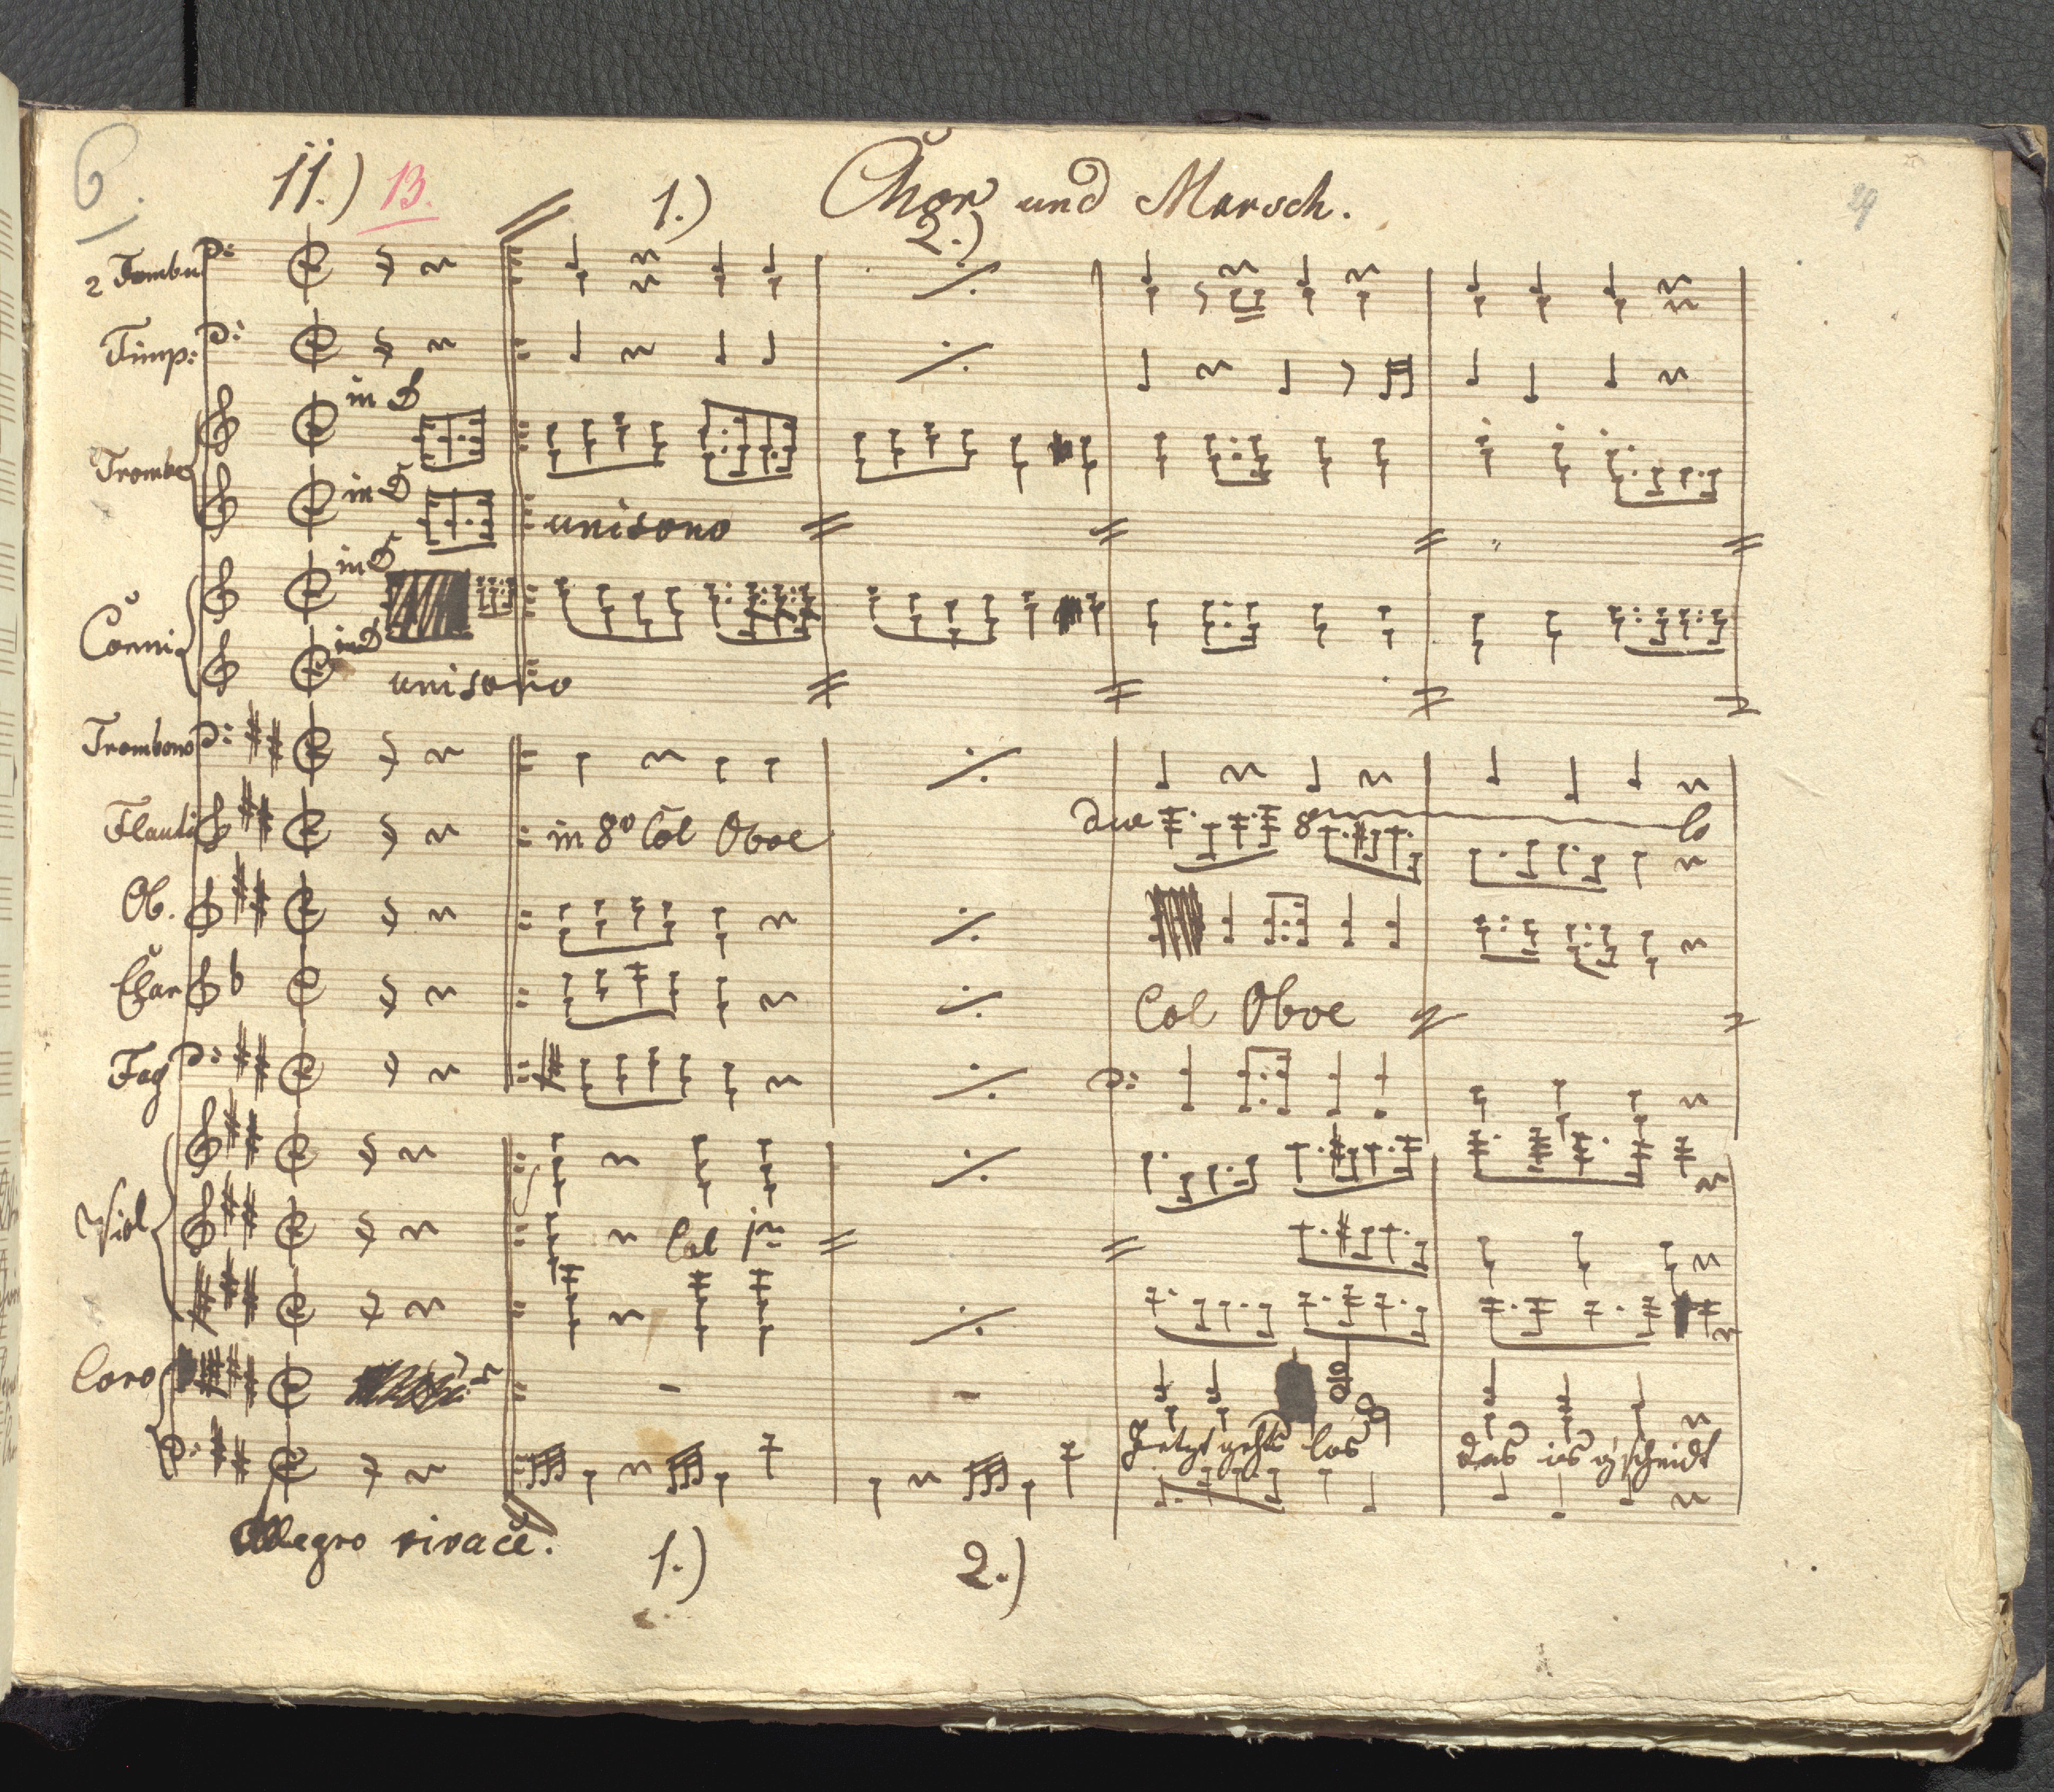 6.
11.) 13. 1.) Chor und Marsch.
29
2.)
2 Tambu
Timp:
in D
Trombe
in D
unisono
in D
Corni
in D
unisono
Trombono
Flauti in 8º Col Oboe due 8 lo
Ob.
Clar Col Oboe
Fag
Viol Col 1mo
Coro
Jetzt gehts los das is g'scheidt
Allegro vivace.
1.) 2.)